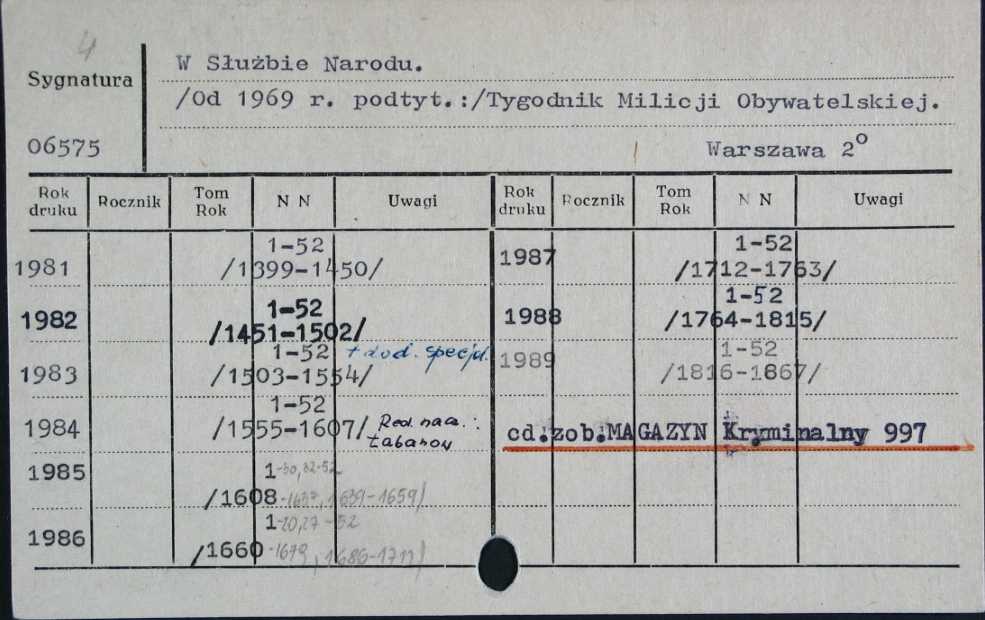 4
Sygnatura
06575
W Służbie Narodu.
/Od 1969 r. podtyt.:/Tygodnik Milicji Obywatelskiej.
Warszawa 2°
Rok druku Rocznik Tom Rok N N Uwagi
1981 1-52
/1399-1450/
1982 1-52
/1451-1502/
1983 1-52 + dod. specjal.
/1503-1554/
1984 1-52
/1555-1607/ Red. nacz.:
Łabanow
1985 1-30,32-52
/1608-1637, 1639-1659/
1986 1-20,27-52
/1660-1679, 1686-1711/
Rok druku Rocznik Tom Rok N N Uwagi
1987 1-52
/1712-1763/
1988 1-52
/1764-1815/
1989 1-52
/1816-1867/
cd.zob.MAGAZYN Kryminalny 997